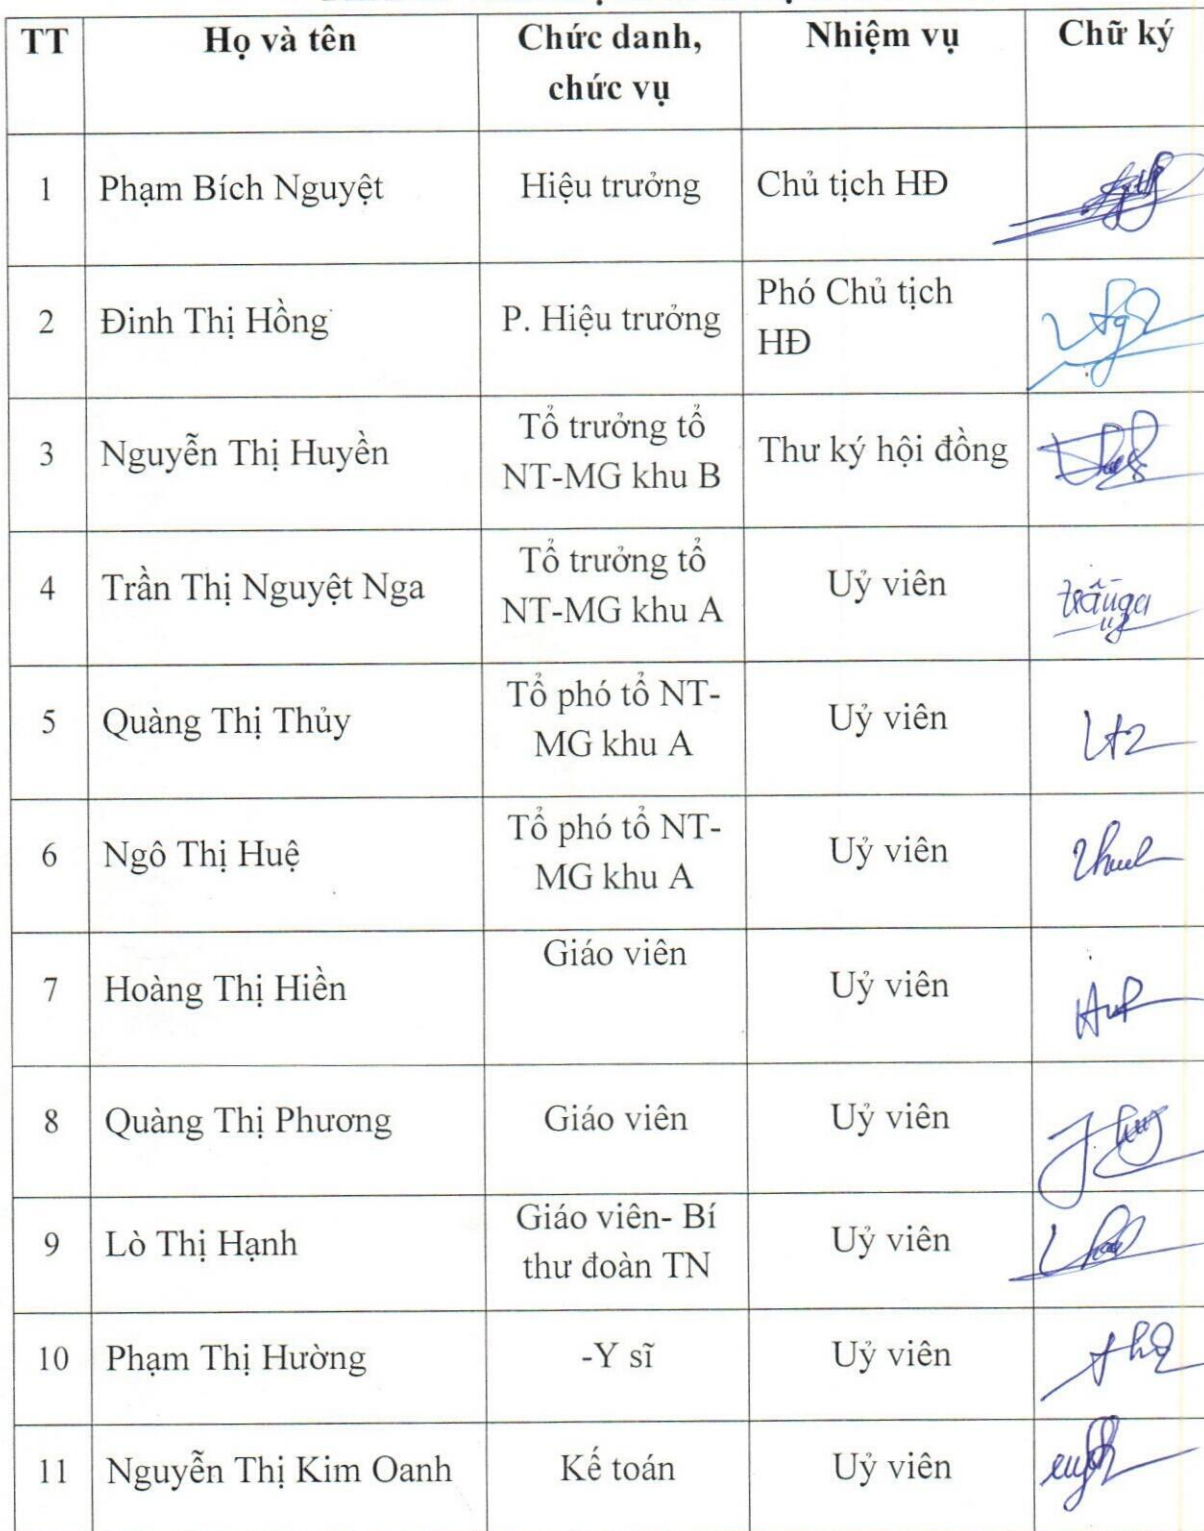 TT Họ và tên Chức danh, chức vụ Nhiệm vụ Chữ ký
1 Phạm Bích Nguyệt Hiệu trưởng Chủ tịch HĐ
2 Đinh Thị Hồng P. Hiệu trưởng Phó Chủ tịch HĐ
3 Nguyễn Thị Huyền Tổ trưởng tổ NT-MG khu B Thư ký hội đồng
4 Trần Thị Nguyệt Nga Tổ trưởng tổ NT-MG khu A Uỷ viên
5 Quàng Thị Thủy Tổ phó tổ NT-MG khu A Uỷ viên
6 Ngô Thị Huệ Tổ phó tổ NT-MG khu A Uỷ viên
7 Hoàng Thị Hiền Giáo viên Uỷ viên
8 Quàng Thị Phương Giáo viên Uỷ viên
9 Lò Thị Hạnh Giáo viên- Bí thư đoàn TN Uỷ viên
10 Phạm Thị Hường -Y sĩ Uỷ viên
11 Nguyễn Thị Kim Oanh Kế toán Uỷ viên